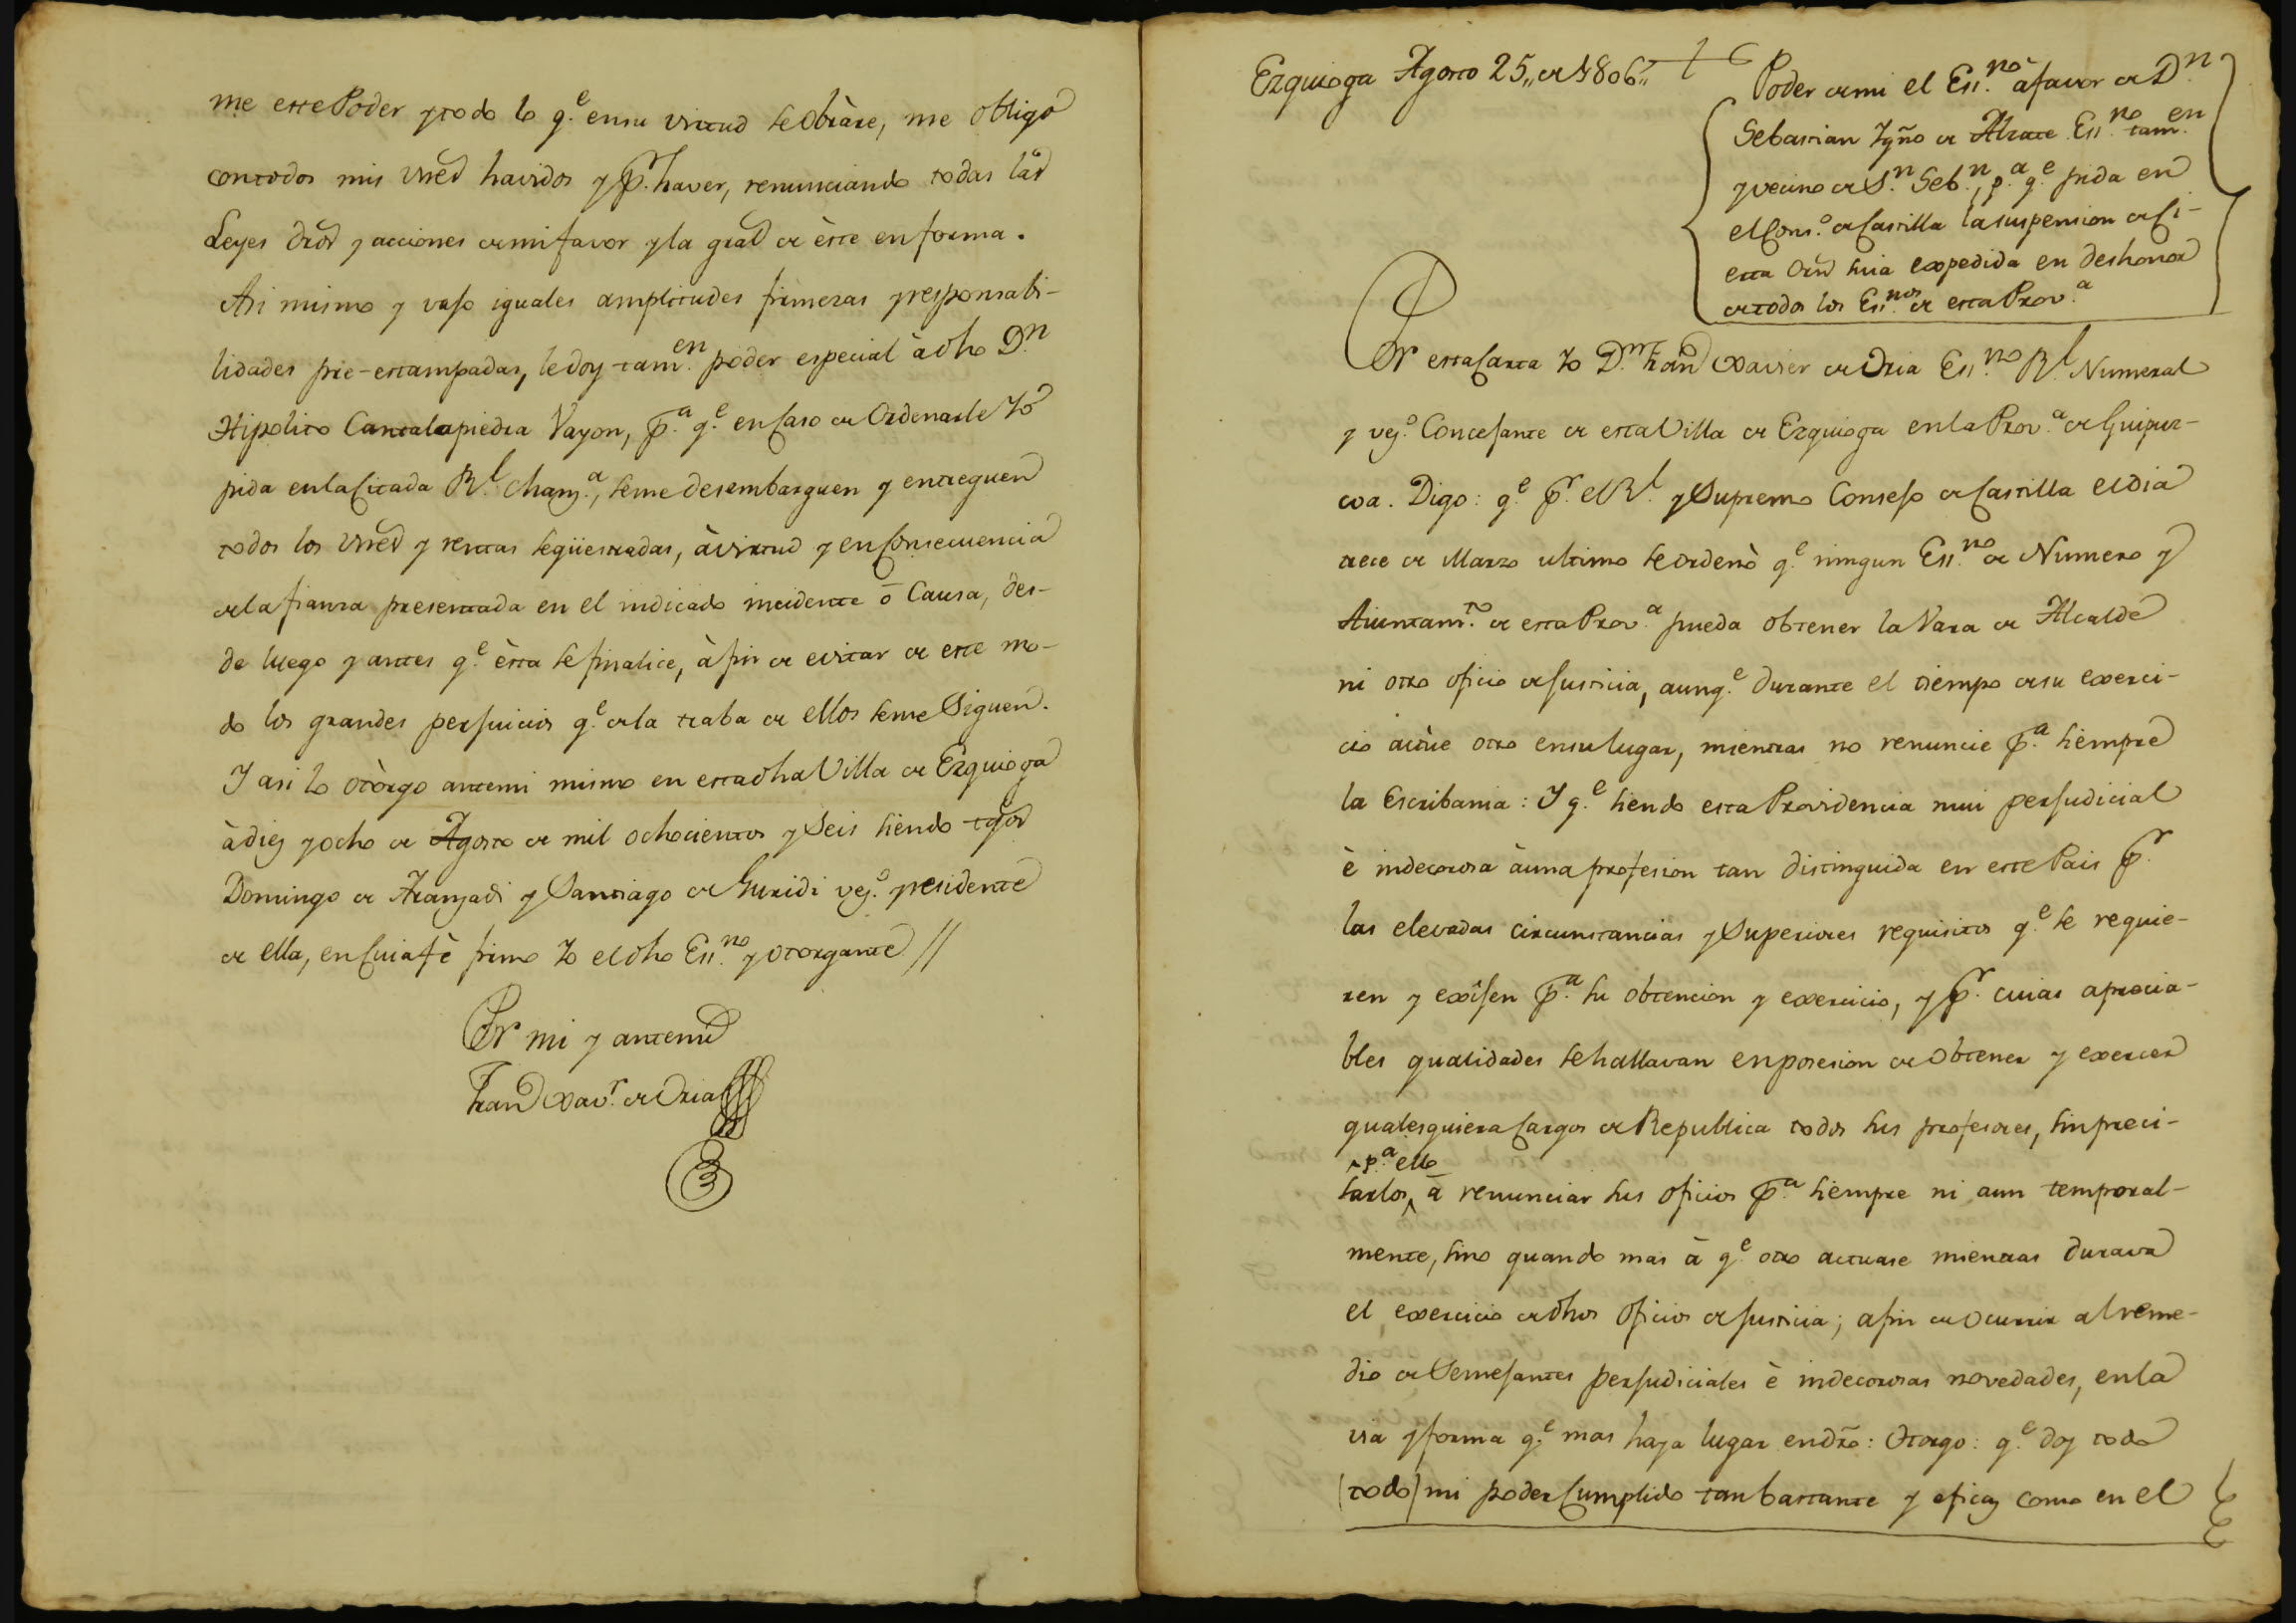 me este Poder y todo lo q.e en su virtud se obràre, me obligo
con todos mis vnes havidos y p.r haver, renunciando todas las
Leyes dros y acciones de mi favor y la gral de èste en forma.
Asi mismo y vajo iguales amplitudes firmezas y responsabi-
lidades pre-estampadas, le doy tam.en poder especial à dho D.n
Hipolito Cantalapiedra Vayon, p.a q.e en Caso de Ordenarle Yo
pida en la Citada R.l Chanz.a, se me desembarguen y entreguen
todos los vnes y rentas seqüestradas, à virtud y en Consecuencia
de la fianza presentada en el indicado incidente ò Causa, des-
de luego y antes q.e èsta se finalice, à fin de evitar de este mo-
do los grandes perjuicios q.e de la traba de ellos se me Siguen.
Y asi lo otòrgo ante mi mismo en esta dha Villa de Ezquioga
à diez y ocho de Agosto de mil ochocientos y Seis siendo tgos
Domingo de Aranzadi y Santiago de Guridi vez.o y residente
de ella, en Cuia fè firmo Yo el dho Ess.no y otorgante //
Por mi y ante mi
Fran Xav.r de Oria
Ezquioga Agosto 25,, de 1806,,
Poder de mi el Ess.no à favor de D.n
Sebastian Ygño de Alzate Ess.no tam.en
y vecino de S.n Seb.n, p.a q.e pida en
el Cons.o de Castilla la suspension de Ci-
erta Orn suia expedida en deshonor
de todos los Ess.nos de esta Prov.a
Por esta Carta Yo D.n Fran Xavier de Oria Ess.no R.l Numeral
y vez.o Concejante de esta Villa de Ezquioga en la Prov.a de Guipuz-
coa. Digo: q.e p.r el R.l y Supremo Consejo de Castilla el dia
trece de Marzo ultimo se ordenò q.e ningun Ess.no de Numero y
Aiuntam.to de esta Prov.a pueda obtener la Vara de Alcalde
ni otro oficio de Justicia, aunq.e durante el tiempo de su exerci-
cio actùe otro en su lugar, mientras no renuncie p.a siempre
la Escribania: Y q.e siendo esta Providencia mui perjudicial
è indecorosa à una profesion tan distinguida en este Pais p.r
las elevadas circunstancias y Superiores requisitos q.e se requie-
ren y exîjen p.a su obtencion y exercicio, y p.r cuias aprecia-
bles qualidades se hallavan en posesion de Obtener y exercer
qualesquiera Cargos de Republica todos sus profesores, sin preci-
p.a ello
sarlos, à renunciar sus oficios p.a siempre ni aun temporal-
mente, sino quando mas à q.e otro actuase mientras durava
el exercicio de dhos Oficios de Justicia; a fin de Ocurrir al reme-
dio de Semejantes perjudiciales è indecorosas novedades, en la
via y forma q.e mas haya lugar en dro: Otorgo: q.e doy todo
(todo) mi poder Cumplido tan bastante y eficaz como en el